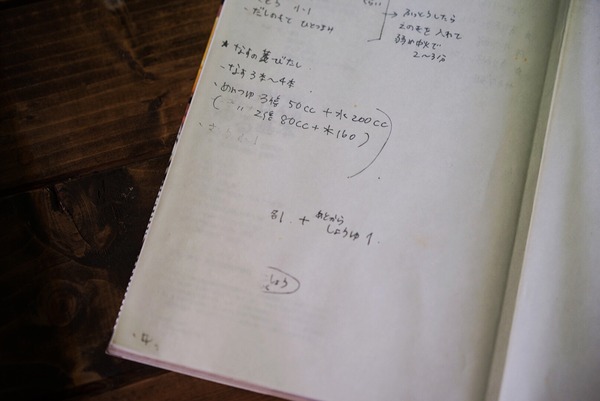 ・だしのもと ひとつまみ
→ ふっとうしたら
このもを 入れて
弱め中火で
2〜3分
★なすの煮びたし
・なす3本〜4本
・めんつゆ 3倍 50cc + 水200cc
( 〃 2倍 80cc + 水160 )
+ あとから
しょうゆ 1